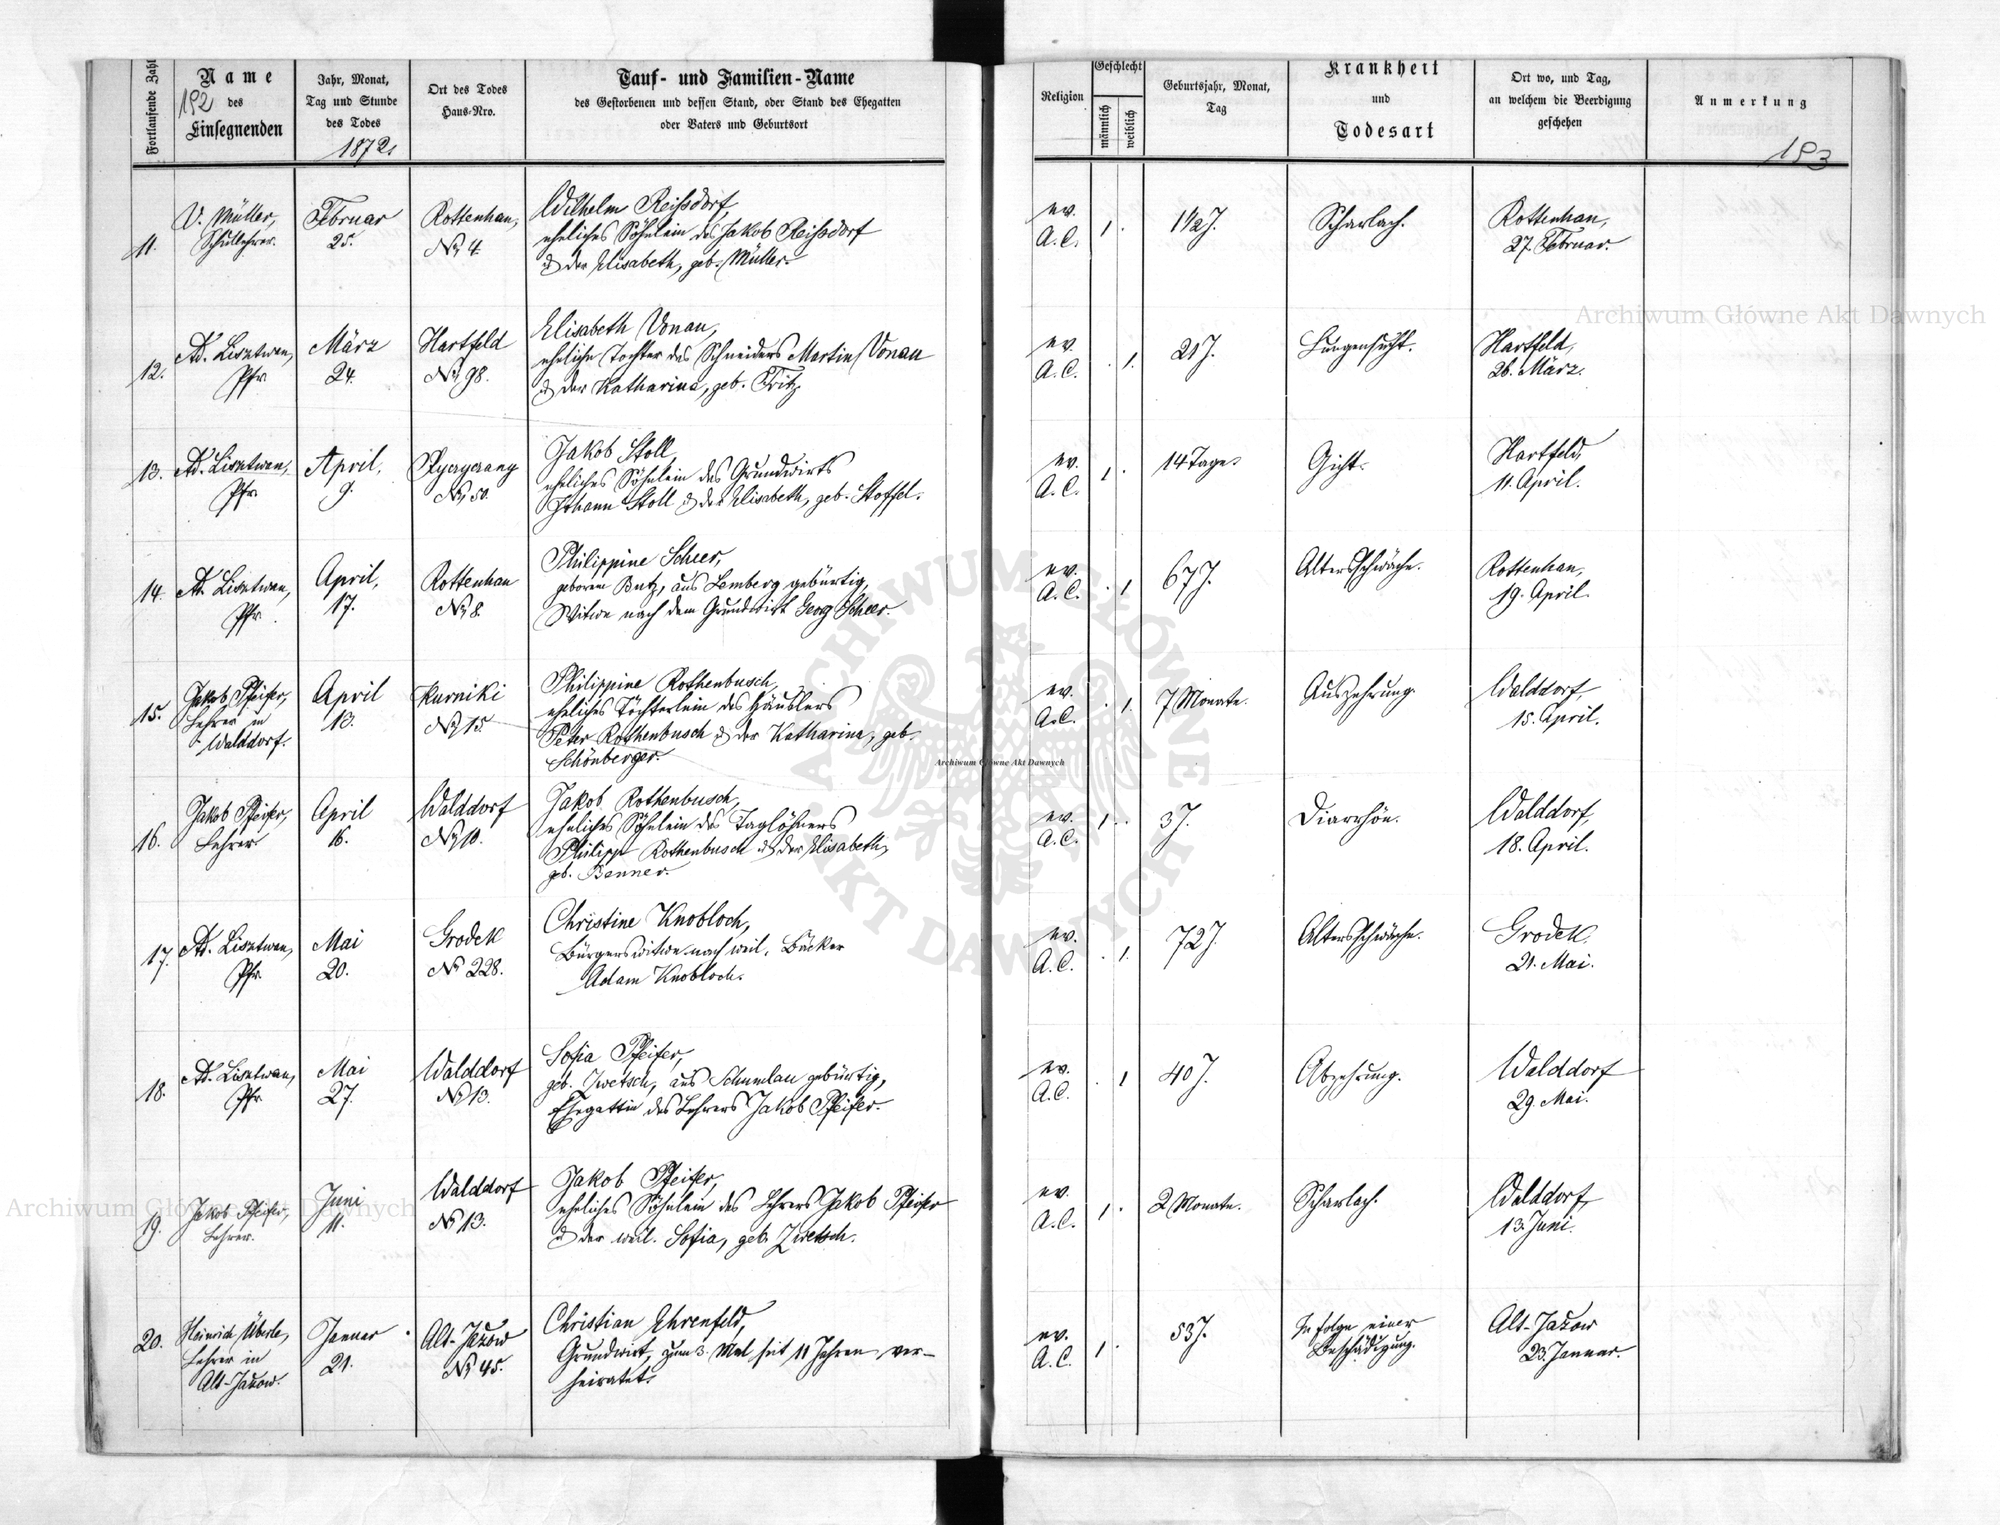 Fortlaufende Zahl
Name
192
des
Einsegnenden
Jahr, Monat,
Tag und Stunde
des Todes
1872.
Ort des Todes
Haus-Nro.
Tauf- und Familien-Name
des Gestorbenen und dessen Stand, oder Stand des Ehegatten
oder Vaters und Geburtsort
Religion
Geschlecht
männlich
weiblich
Geburtsjahr, Monat,
Tag
Krankheit
und
Todesart
Ort wo, und Tag,
an welchem die Beerdigung
geschehen
Anmerkung
193
11.
V. Müller,
Schullehrer.
Februar
25.
Rottenhan,
No 4.
Wilhelm Reissdorf,
eheliches Söhnlein des Jakob Reissdorf
& der Elisabeth, geb. Müller.
ev.
A.C.
1.
1 1/2 J.
Scharlach.
Rottenhan,
27. Februar.
12.
Ad. Lisztwan,
Pfr.
März
24.
Hartfeld
No 98.
Elisabeth Vonau,
eheliche Tochter des Schneiders Martin Vonau
& der Katharina, geb. Fritz
ev.
A.C.
1.
21 J.
Lungensucht.
Hartfeld,
26. März.
13.
Ad. Lisztwan,
Pfr.
April,
9.
No 50.
Jakob Stoll,
eheliches Söhnlein des Grundwirts
Johann Stoll & der Elisabeth, geb. Stoffel.
ev.
A.C.
1.
14 Tage.
Gicht.
Hartfeld,
11. April.
14.
Ad. Lisztwan,
Pfr.
April,
17.
Rottenhan
No 8.
Philippine Scheer,
geborene Butz, aus Lemberg gebürtig,
Witwe nach dem Grundwirt Georg Scheer
ev.
A.C.
1
67 J.
Altersschwäche.
Rottenhan,
19. April.
15.
Jakob Pfeifer,
Lehrer in
Walddorf.
April
13.
Kurniki
No 15.
Philippine Rothenbusch,
eheliches Töchterlein des Häuslers
Peter Rothenbusch & der Katharina, geb.
Schönberger.
ev.
A.C.
1.
7 Monate.
Auszehrung
Walddorf,
15. April.
16.
Jakob Pfeifer,
Lehrer
April
16.
Walddorf
No 10.
Jakob Rothenbusch,
eheliches Söhnlein des Taglöhners
Philipp Rothenbusch & der Elisabeth,
geb. Benner.
ev.
A.C.
1.
3 J.
Diarrhöe.
Walddorf,
18. April.
17.
Ad. Lisztwan,
Pfr.
Mai
20.
Grodek
No 228.
Christine Knobloch,
Bürgerswitwe nach weil. Bäcker
Adam Knobloch.
ev.
A.C.
1.
72 J.
Altersschwäche.
Grodek,
21. Mai.
18.
Ad. Lisztwan,
Pfr.
Mai
27.
Walddorf
No 13.
Sofia Pfeifer,
geb. Zwetsch, aus Schumlau gebürtig,
Ehegattin des Lehrers Jakob Pfeifer.
ev.
A.C.
1
40 J.
Abzehrung.
Walddorf
29. Mai.
19.
Jakob Pfeifer,
Lehrer.
Juni
11.
Walddorf
No 13.
Jakob Pfeifer,
eheliches Söhnlein des Lehrers Jakob Pfeifer
& der weil. Sofia, geb. Zwetsch.
ev.
A.C.
1.
2 Monate.
Scharlach.
Walddorf,
13. Juni.
20.
Heinrich Überle,
Lehrer in
Alt-Jazow.
Januar
21.
Alt-Jazow
No 45.
Christian Ehrenfeld,
Grundwirt, zum 3. Mal seit 11 Jahren ver-
heiratet.
ev.
A.C.
1.
53 J.
In folge einer
Beschädigung.
Alt-Jazow
23. Januar.
Archiwum Główne Akt Dawnych
ARCHIWUM GŁÓWNE AKT DAWNYCH
Archiwum Główne Akt Dawnych
Archiwum Główne Akt Dawnych